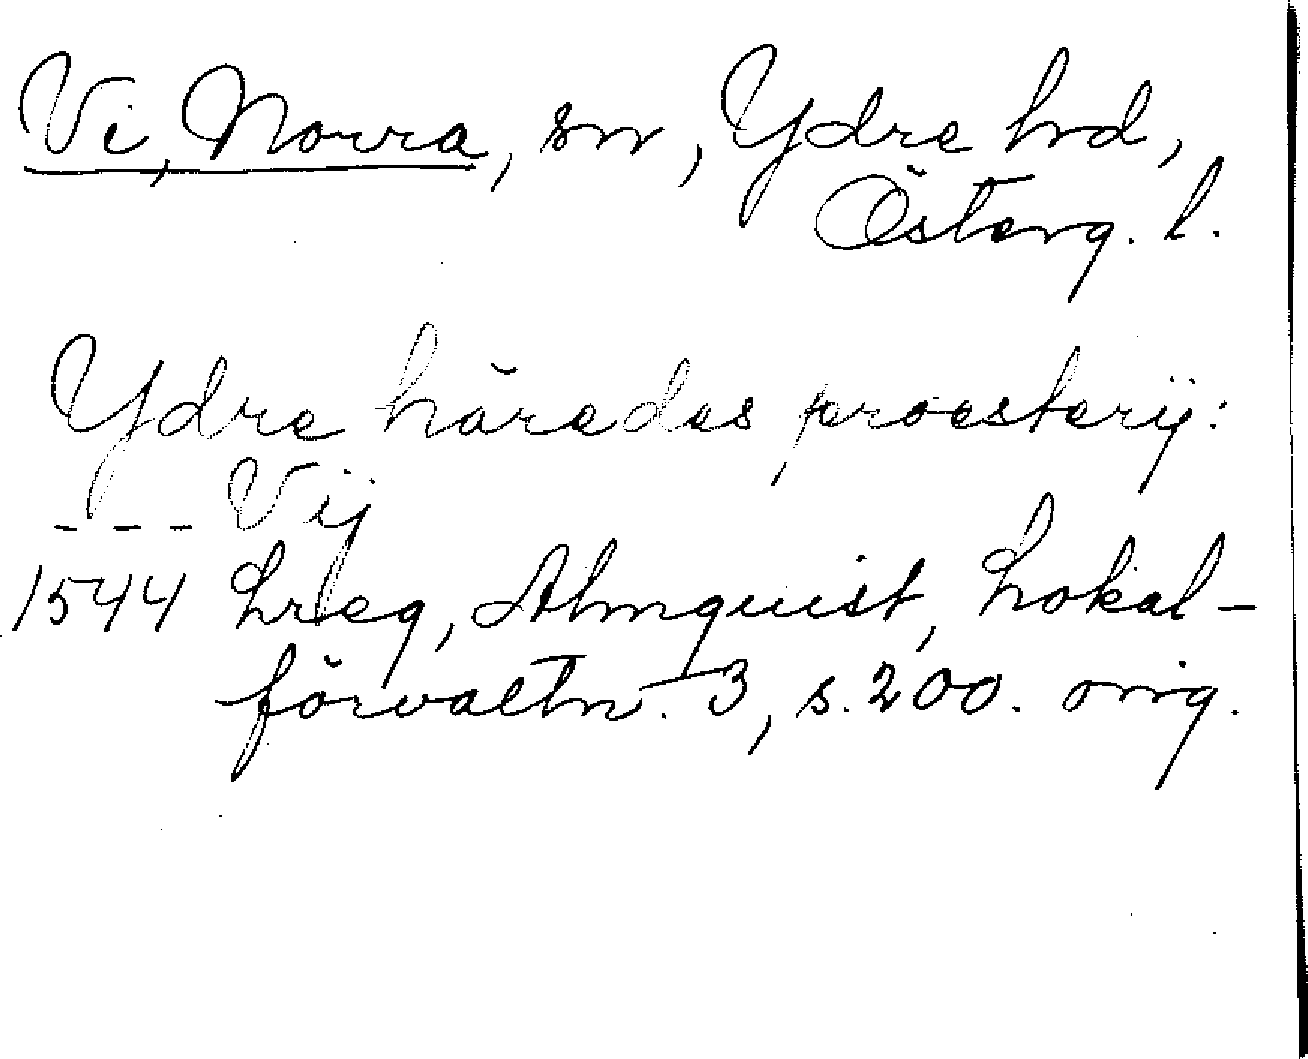 Vi, Norra, sn, Ydre hd,
Österg. l.
Ydre häredes proesterij:
- - - Vij
1544 Lreg, Almquist, Lokal-
förvaltn. 3, s. 200. orig.